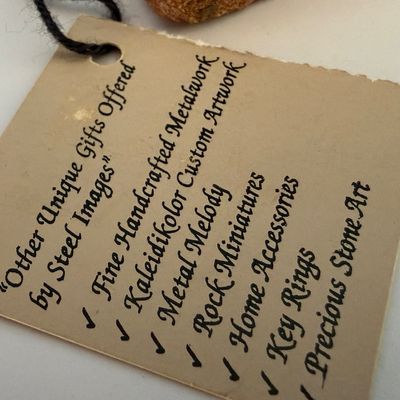 "Other Unique Gifts Offered
by Steel Images"
✓ Fine Handcrafted Metalwork
✓ Kaleidikolor Custom Artwork
✓ Metal Melody
✓ Rock Miniatures
✓ Home Accessories
✓ Key Rings
✓ Precious Stone Art